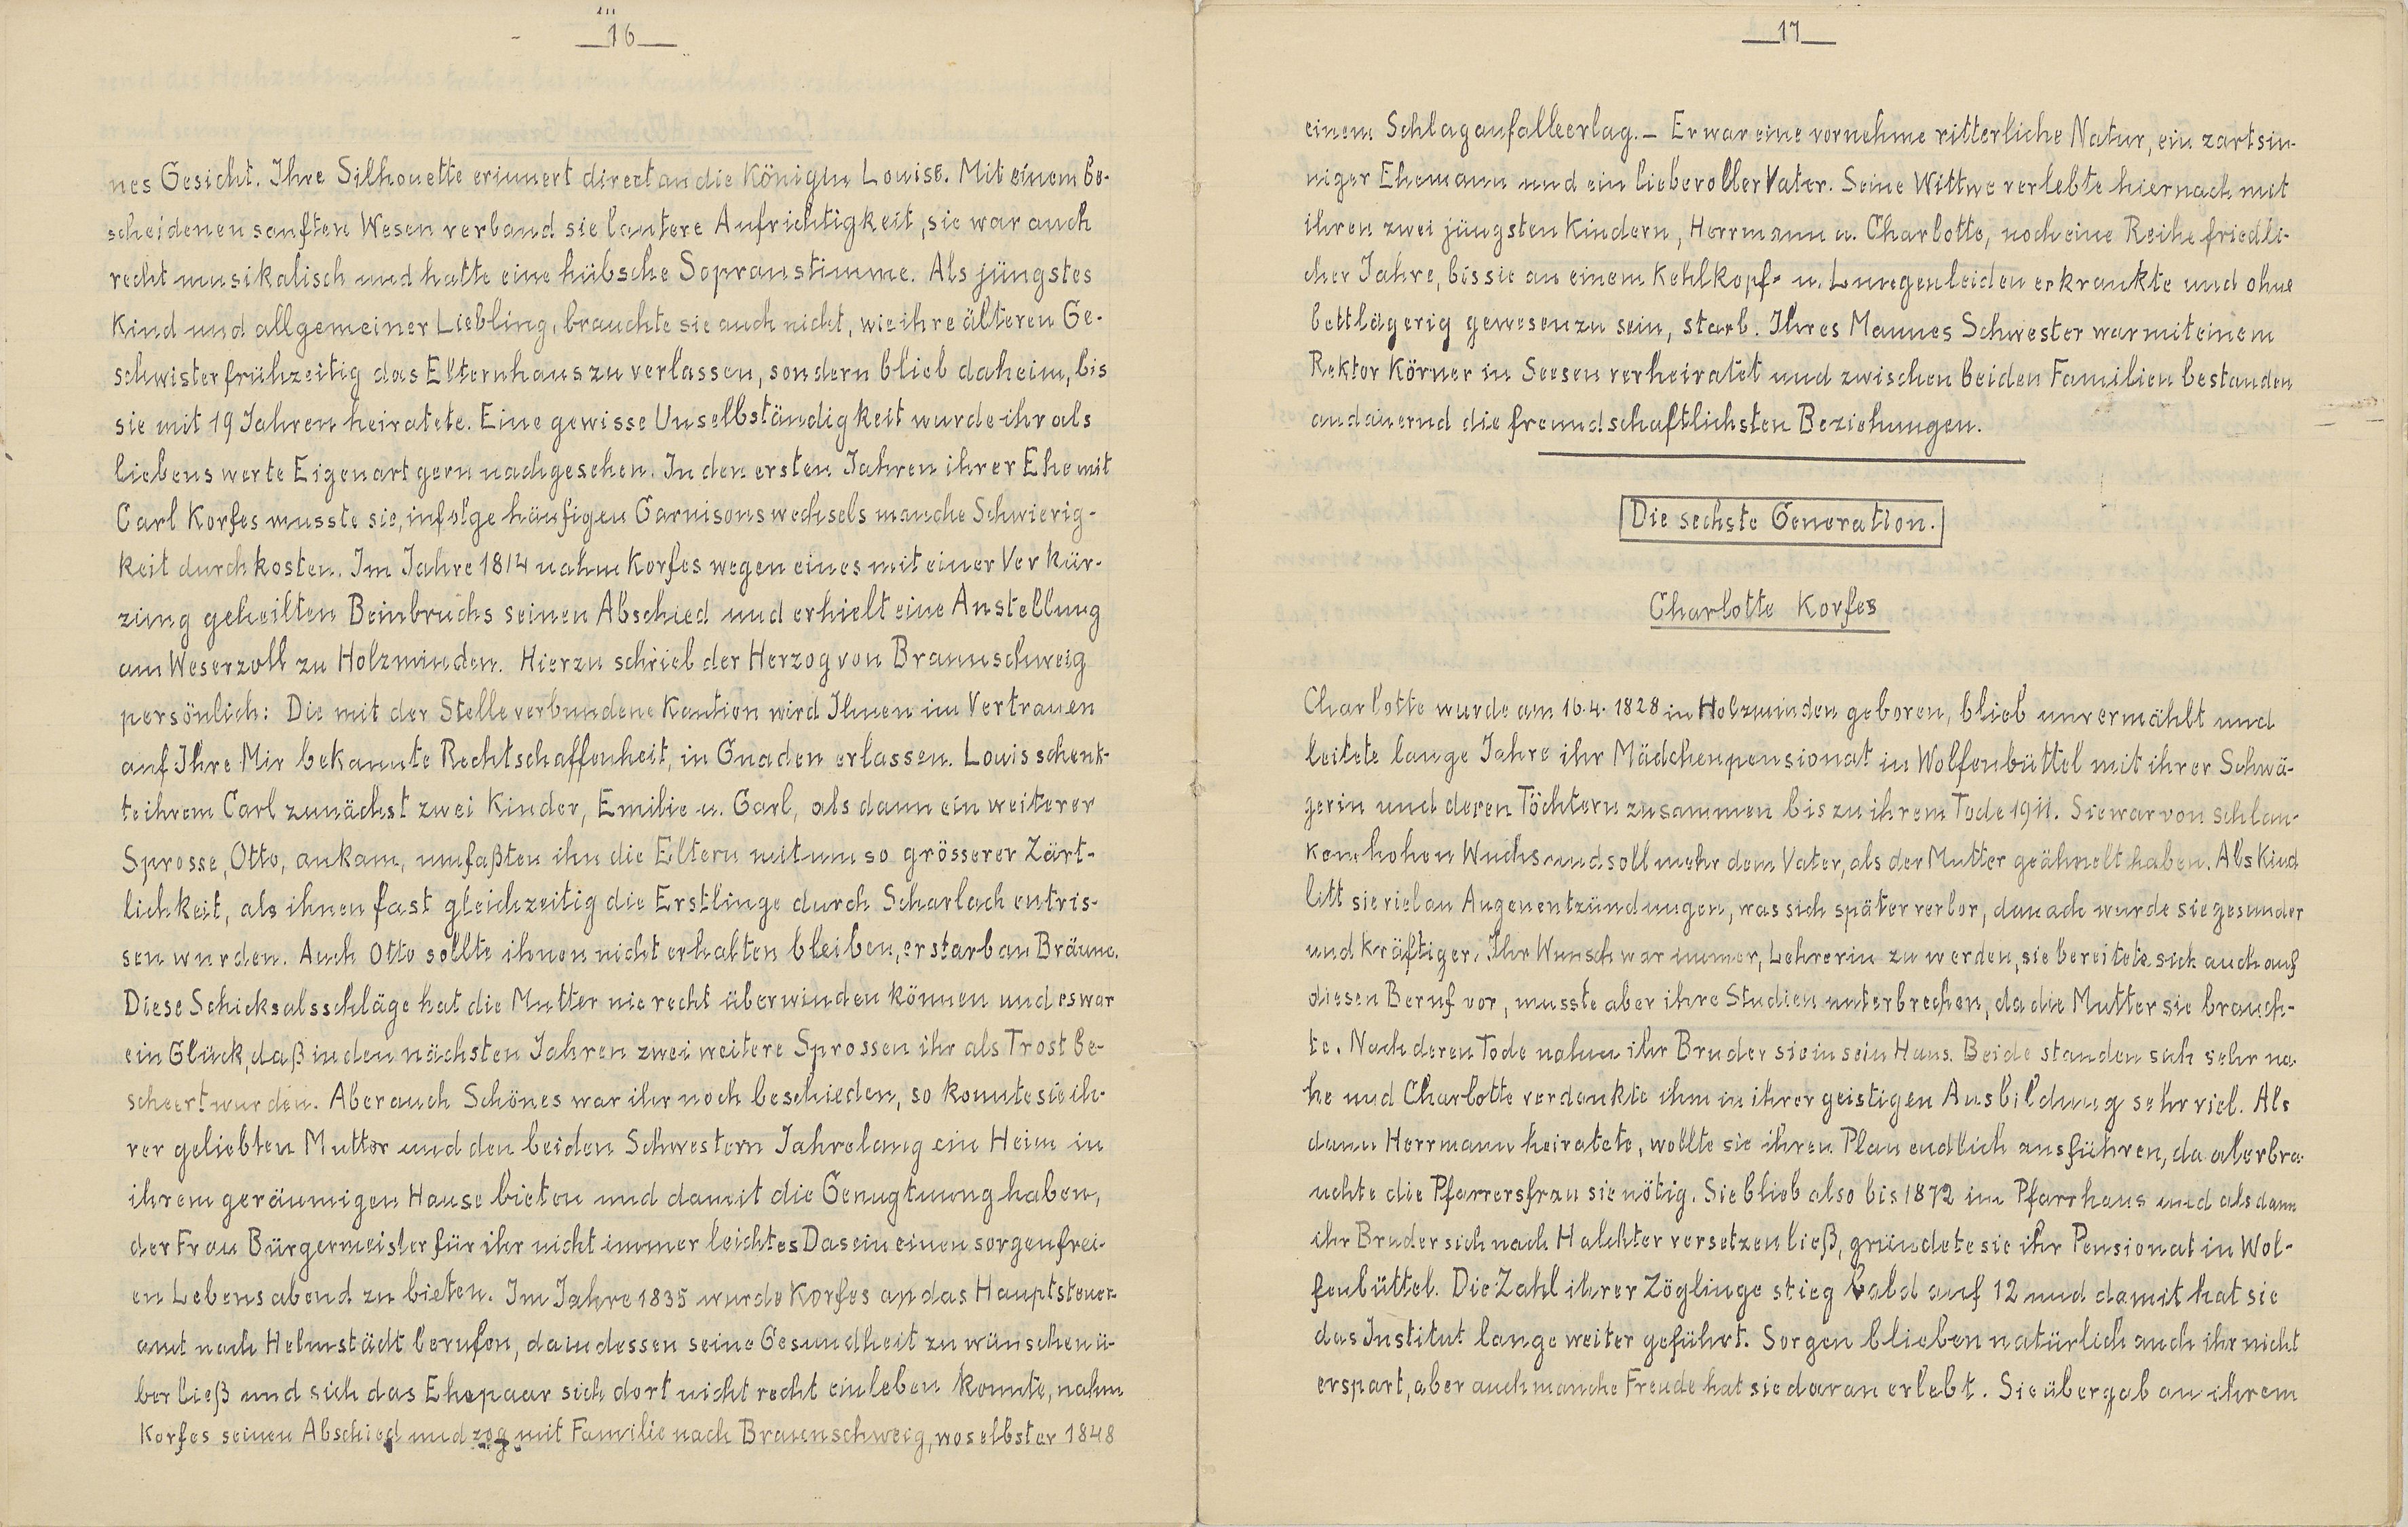 16
nes Gesicht. Ihre Silhouette erinnert direct an die Königin Louise. Mit einem be-
scheidenen sanften Wesen verband sie lautere Aufrichtigkeit, sie war auch
recht musikalisch und hatte eine hübsche Sopranstimme. Als jüngstes
Kind und allgemeiner Liebling, brauchte sie auch nicht, wie ihre älteren Ge-
schwister frühzeitig das Elternhaus zu verlassen, sondern blieb daheim, bis
sie mit 19 Jahren heiratete. Eine gewisse Unselbständigkeit wurde ihr als
liebenswerte Eigenart gern nachgesehen. In den ersten Jahren ihrer Ehe mit
Carl Korfes musste sie, infolge häufigen Garnisonswechsels manche Schwierig-
keit durchkosten. Im Jahre 1814 nahm Korfes wegen eines mit einer Verkür-
zung geheilten Beinbruchs seinen Abschied und erhielt eine Anstellung
am Weserzoll zu Holzminden. Hierzu schrieb der Herzog von Braunschweig
persönlich: Die mit der Stelle verbundene Kaution wird Ihnen im Vertrauen
auf Ihre Mir bekannte Rechtschaffenheit, in Gnaden erlassen. Louis schenk-
te ihrem Carl zunächst zwei Kinder, Emilie u. Carl, als dann ein weiterer
Sprosse, Otto, ankam, umfaßten ihn die Eltern mit um so grösserer Zärt-
lichkeit, als ihnen fast gleichzeitig die Erstlinge durch Scharlach entris-
sen wurden. Auch Otto sollte ihnen nicht erhalten bleiben, er starb an Bräune.
Diese Schicksalsschläge hat die Mutter nie recht überwinden können und es war
ein Glück, daß in den nächsten Jahren zwei weitere Sprossen ihr als Trost be-
scheert wurden. Aber auch Schönes war ihr noch beschieden, so konnte sie ih-
rer geliebten Mutter und den beiden Schwestern Jahrelang ein Heim in
ihrem geräumigen Hause bieten und damit die Genugtuung haben,
der Frau Bürgermeister für ihr nicht immer leichtes Dasein einen sorgenfrei-
en Lebensabend zu bieten. Im Jahre 1835 wurde Korfes an das Hauptsteuer-
amt nach Helmstädt berufen, da indessen seine Gesundheit zu wünschen ü-
ber ließ und sich das Ehepaar sich dort nicht recht einleben konnte, nahm
Korfes seinen Abschied und zog mit Familie nach Braunschweig, woselbst er 1848
17
einem Schlaganfalle erlag. – Er war eine vornehme ritterliche Natur, ein zartsin-
niger Ehemann und ein liebevoller Vater. Seine Wittwe verlebte hiernach mit
ihren zwei jüngsten Kindern, Herrmann u. Charlotte, noch eine Reihe friedli-
cher Jahre, bis sie an einem Kehlkopf- u. Lungenleiden erkrankte und ohne
bettlägerig gewesen zu sein, starb. Ihres Mannes Schwester war mit einem
Rektor Körner in Seesen verheiratet und zwischen beiden Familien bestanden
andauernd die freundschaftlichsten Beziehungen.
Die sechste Generation.
Charlotte Korfes
Charlotte wurde am 16.4.1828 in Holzminden geboren, blieb unvermählt und
leitete lange Jahre ihr Mädchenpensionat in Wolfenbüttel mit ihrer Schwä-
gerin und deren Töchtern zusammen bis zu ihrem Tode 1911. Sie war von schlan-
kem hohen Wuchs und soll mehr dem Vater, als der Mutter geähnelt haben. Als Kind
litt sie viel an Augenentzündungen, was sich später verlor, danach wurde sie gesunder
und kräftiger. Ihr Wunsch war immer, Lehrerin zu werden, sie bereitete sich auch auf
diesen Beruf vor, musste aber ihre Studien unterbrechen, da die Mutter sie brauch-
te. Nach deren Tode nahm ihr Bruder sie in sein Haus. Beide standen sich sehr na-
he und Charlotte verdankte ihm in ihrer geistigen Ausbildung sehr viel. Als
dann Herrmann heiratete, wollte sie ihren Plan endlich ausführen, da aber bra-
uchte die Pfarrersfrau sie nötig. Sie blieb also bis 1872 im Pfarrhaus und als dann
ihr Bruder sich nach Halchter versetzen ließ, gründete sie ihr Pensionat in Wol-
fenbüttel. Die Zahl ihrer Zöglinge stieg bald auf 12 und damit hat sie
das Institut lange weiter geführt. Sorgen blieben natürlich auch ihr nicht
erspart, aber auch manche Freude hat sie daran erlebt. Sie übergab an ihrem